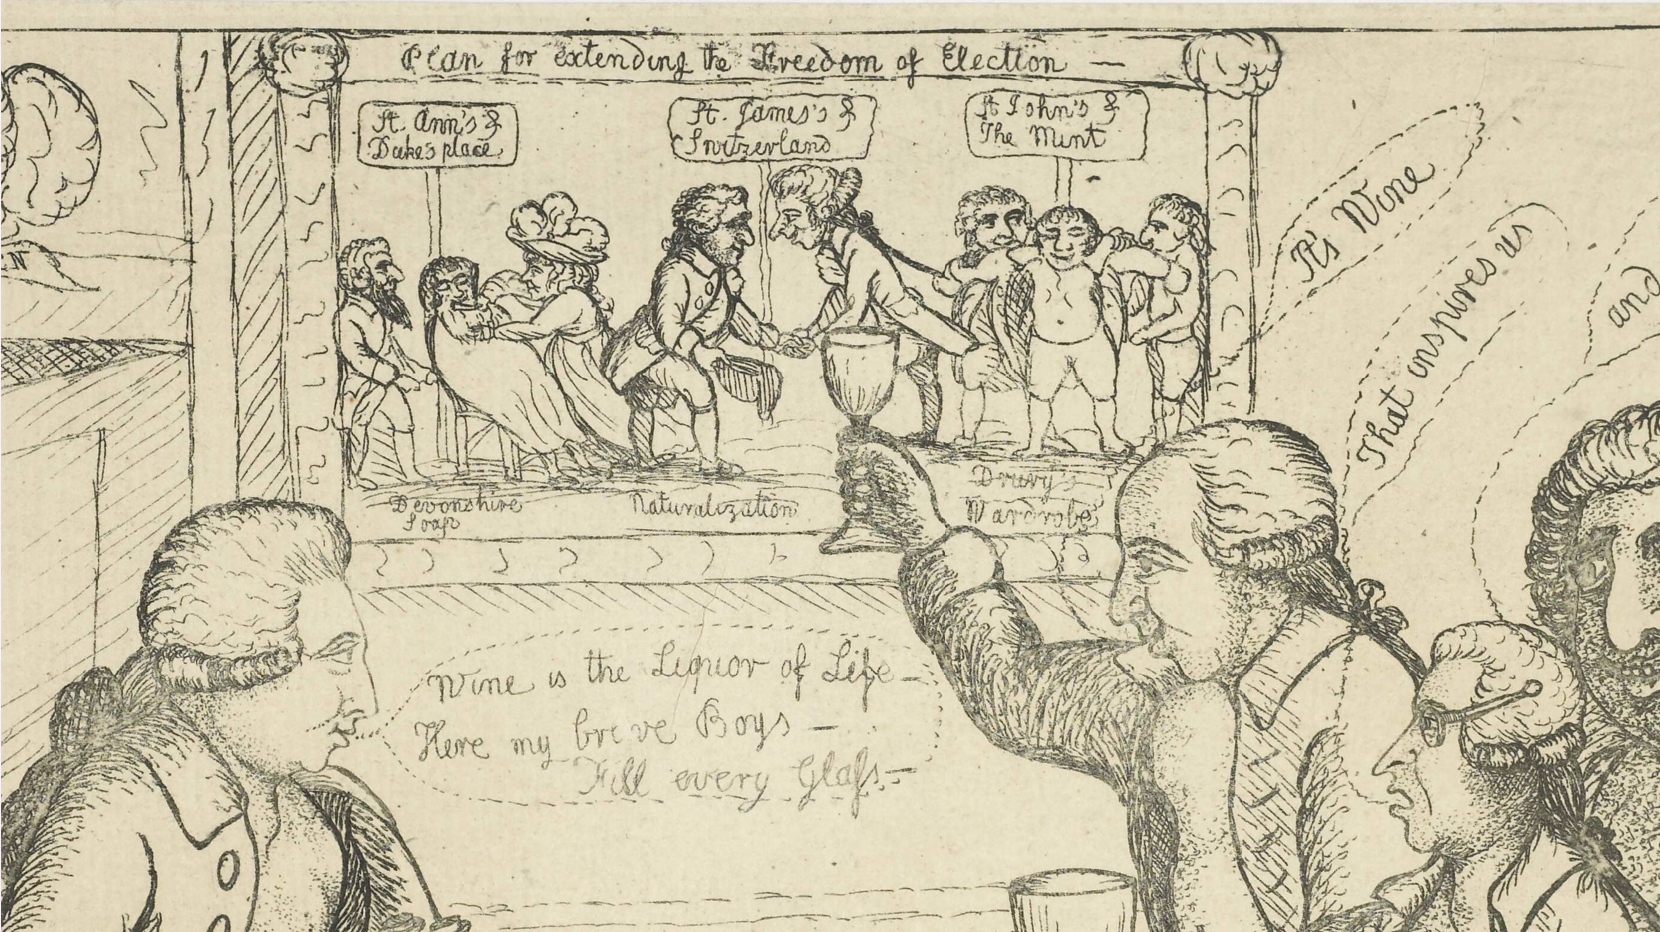 Plan for extending the Freedom of Election —
St. Ann's &
Duke's place
St. James's &
Switzerland
St John's &
The Mint
Devonshire
Soap
Naturalization
Drury's
Wardrobe
It's Wine
That inspires us
and
Wine is the Liquor of Life —
Here my breve Boys —
Fill every Glaſs —